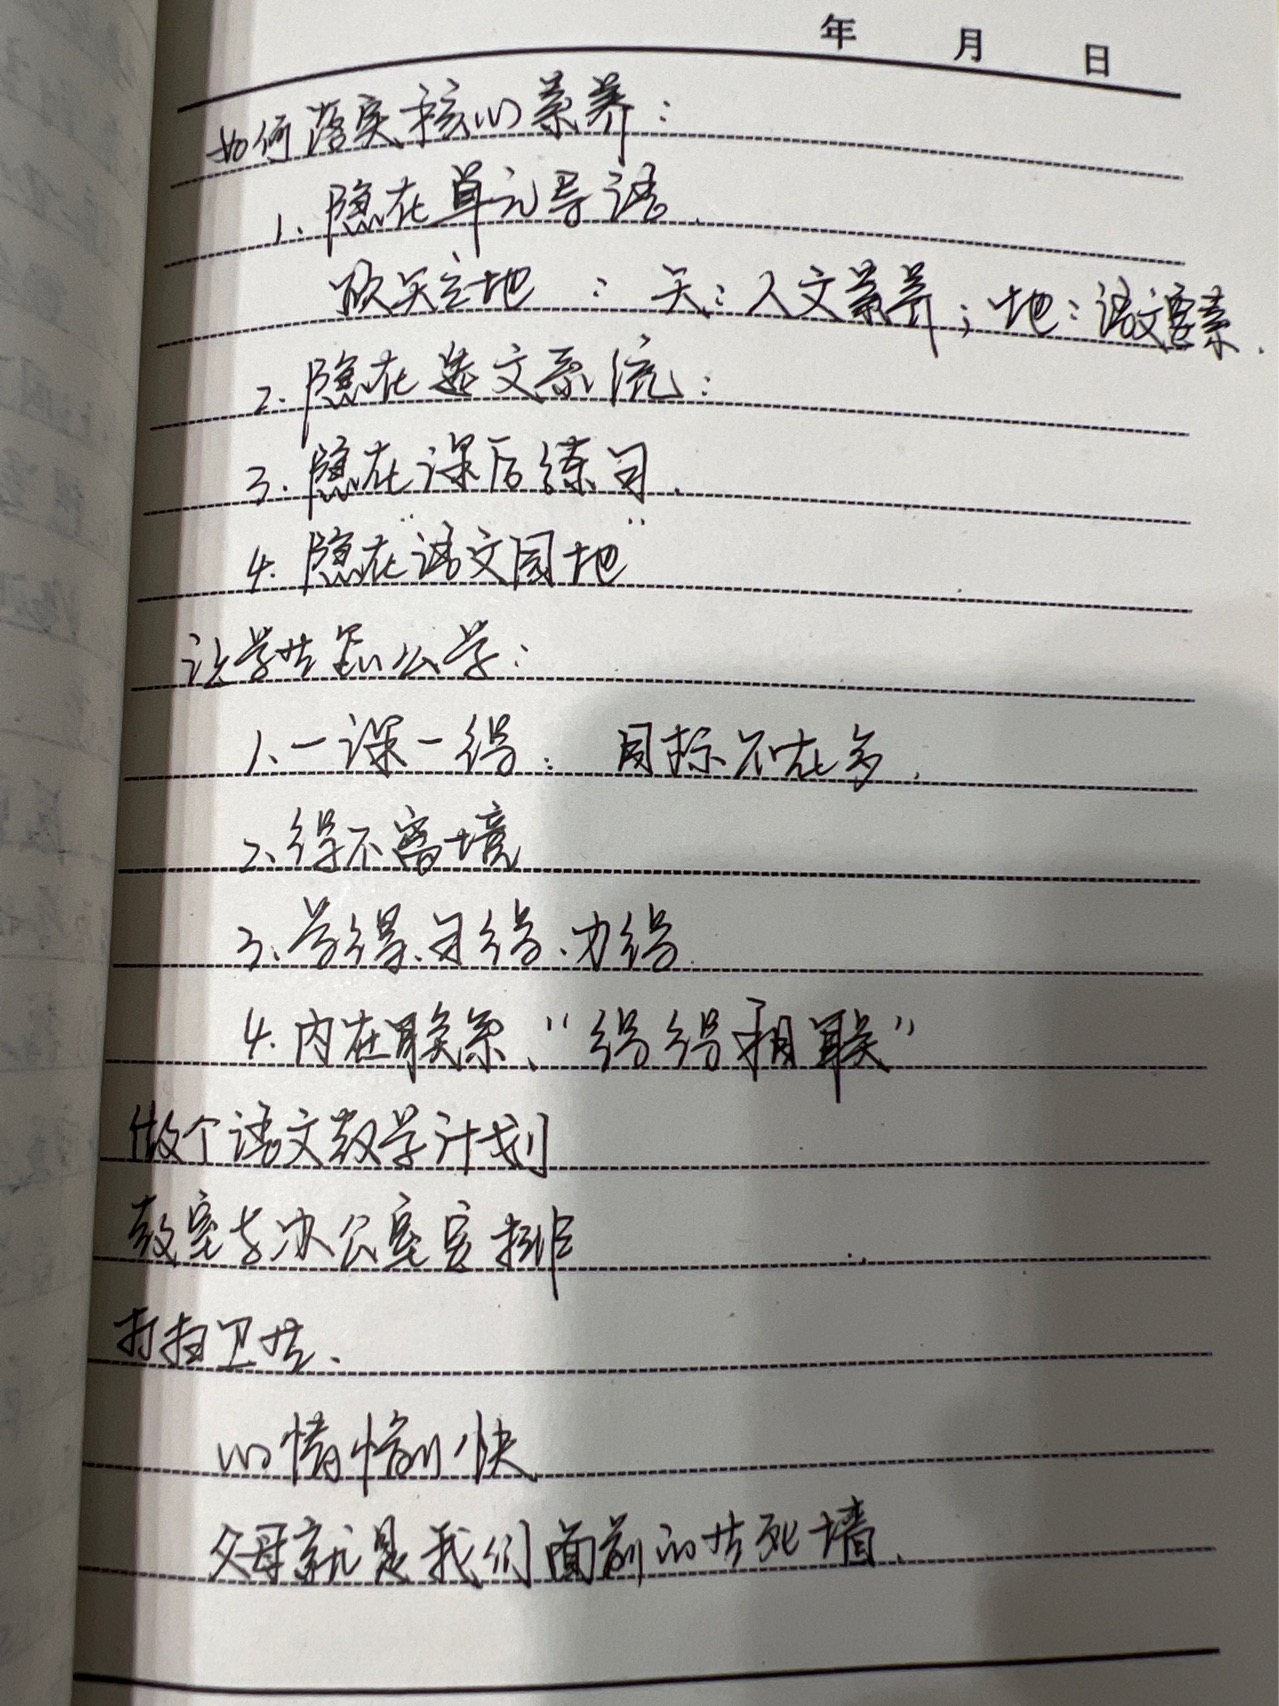 年 月 日
如何落实核心素养：
1. 隐在单元导语.
顶天立地 : 天：人文素养；地：语文要素.
2. 隐在选文系统：
3. 隐在课后练习.
4. 隐在“语文园地”
让学生怎么学：
1、一课一得： 目标不在多.
2、得不离境
3、学得、习得、力得.
4. 内在联系、“得得相联”
做个语文教学计划
教室与办公室安排
打扫卫生.
心情愉快.
父母就是我们面前的生死墙.